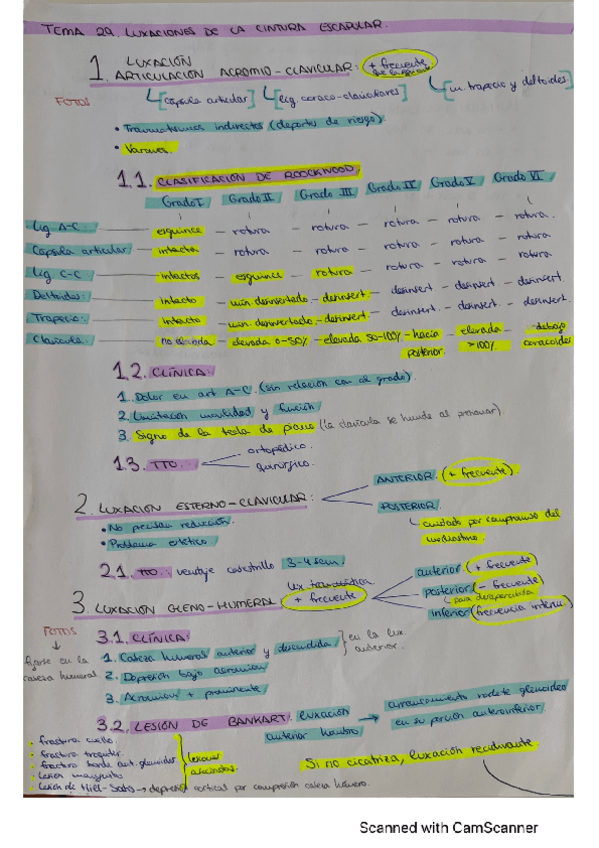 TEMA 29. LUXACIONES DE LA CINTURA ESCAPULAR.
1. LUXACIÓN ARTICULACIÓN ACROMIO-CLAVICULAR: + frecuente
FOTOS [capsula articular] [lig. coraco-claviculares] [m. trapecio y deltoides]
• Traumatismos indirectos (deportes de riesgo)
• Varones.
1.1. CLASIFICACIÓN DE ROOCKWOOD.
Grado I Grado II Grado III Grado IV Grado V Grado VI
Lig. A-C. esguince - rotura - rotura - rotura - rotura - rotura.
Capsula articular intacta - rotura - rotura - rotura - rotura - rotura
Lig C-C intactos - esguince - rotura - rotura - rotura - rotura.
Deltoides intacto - min desinsertado - desinsert. - desinsert. - desinsert - desinsert.
Trapecio intacto - min. desinsertado - desinsert. - desinsert. - desinsert. - desinsert.
Clavícula elevada 0-50% - elevada 50-100% - hacia posterior. - elevada >100% - debajo coracoides
1.2. CLÍNICA:
1. Dolor en art A-C. (sin relación con el grado).
2. Limitación movilidad y función
3. Signo de la tecla de piano (la clavícula se hunde al presionar).
1.3. TTO. ortopédico.
quirúrgico.
2. LUXACIÓN ESTERNO-CLAVICULAR: ANTERIOR. (+ frecuente)
POSTERIOR.
cuidado por compromiso del mediastino.
• No precisan reducción.
• Problema estético
2.1. TTO: vendaje cabestrillo 3-4 sem.
3. LUXACIÓN GLENO-HUMERAL + frecuente
lux. traumática
anterior (+ frecuente
posterior (- frecuente
pasa desapercibida
inferior (frecuencia
FOTOS
fijarse en la cabeza humeral
3.1. CLÍNICA:
1. Cabeza humeral anterior y descendida } en la lux anterior.
2. Depresión bajo acromion
3. Acromion + prominente
3.2. LESIÓN DE BANKART: luxación anterior hombro → arrancamiento rodete glenoideo en su porción anteroinferior
• fractura cuello.
• fractura troquiter.
• fractura borde ant. glenoides.
• Lesión manguito
• Lesión de Hill-Sachs → depresión cortical por compresión cabeza húmero.
lesiones asociadas.
Si no cicatriza, luxación recidivante
Scanned with CamScanner